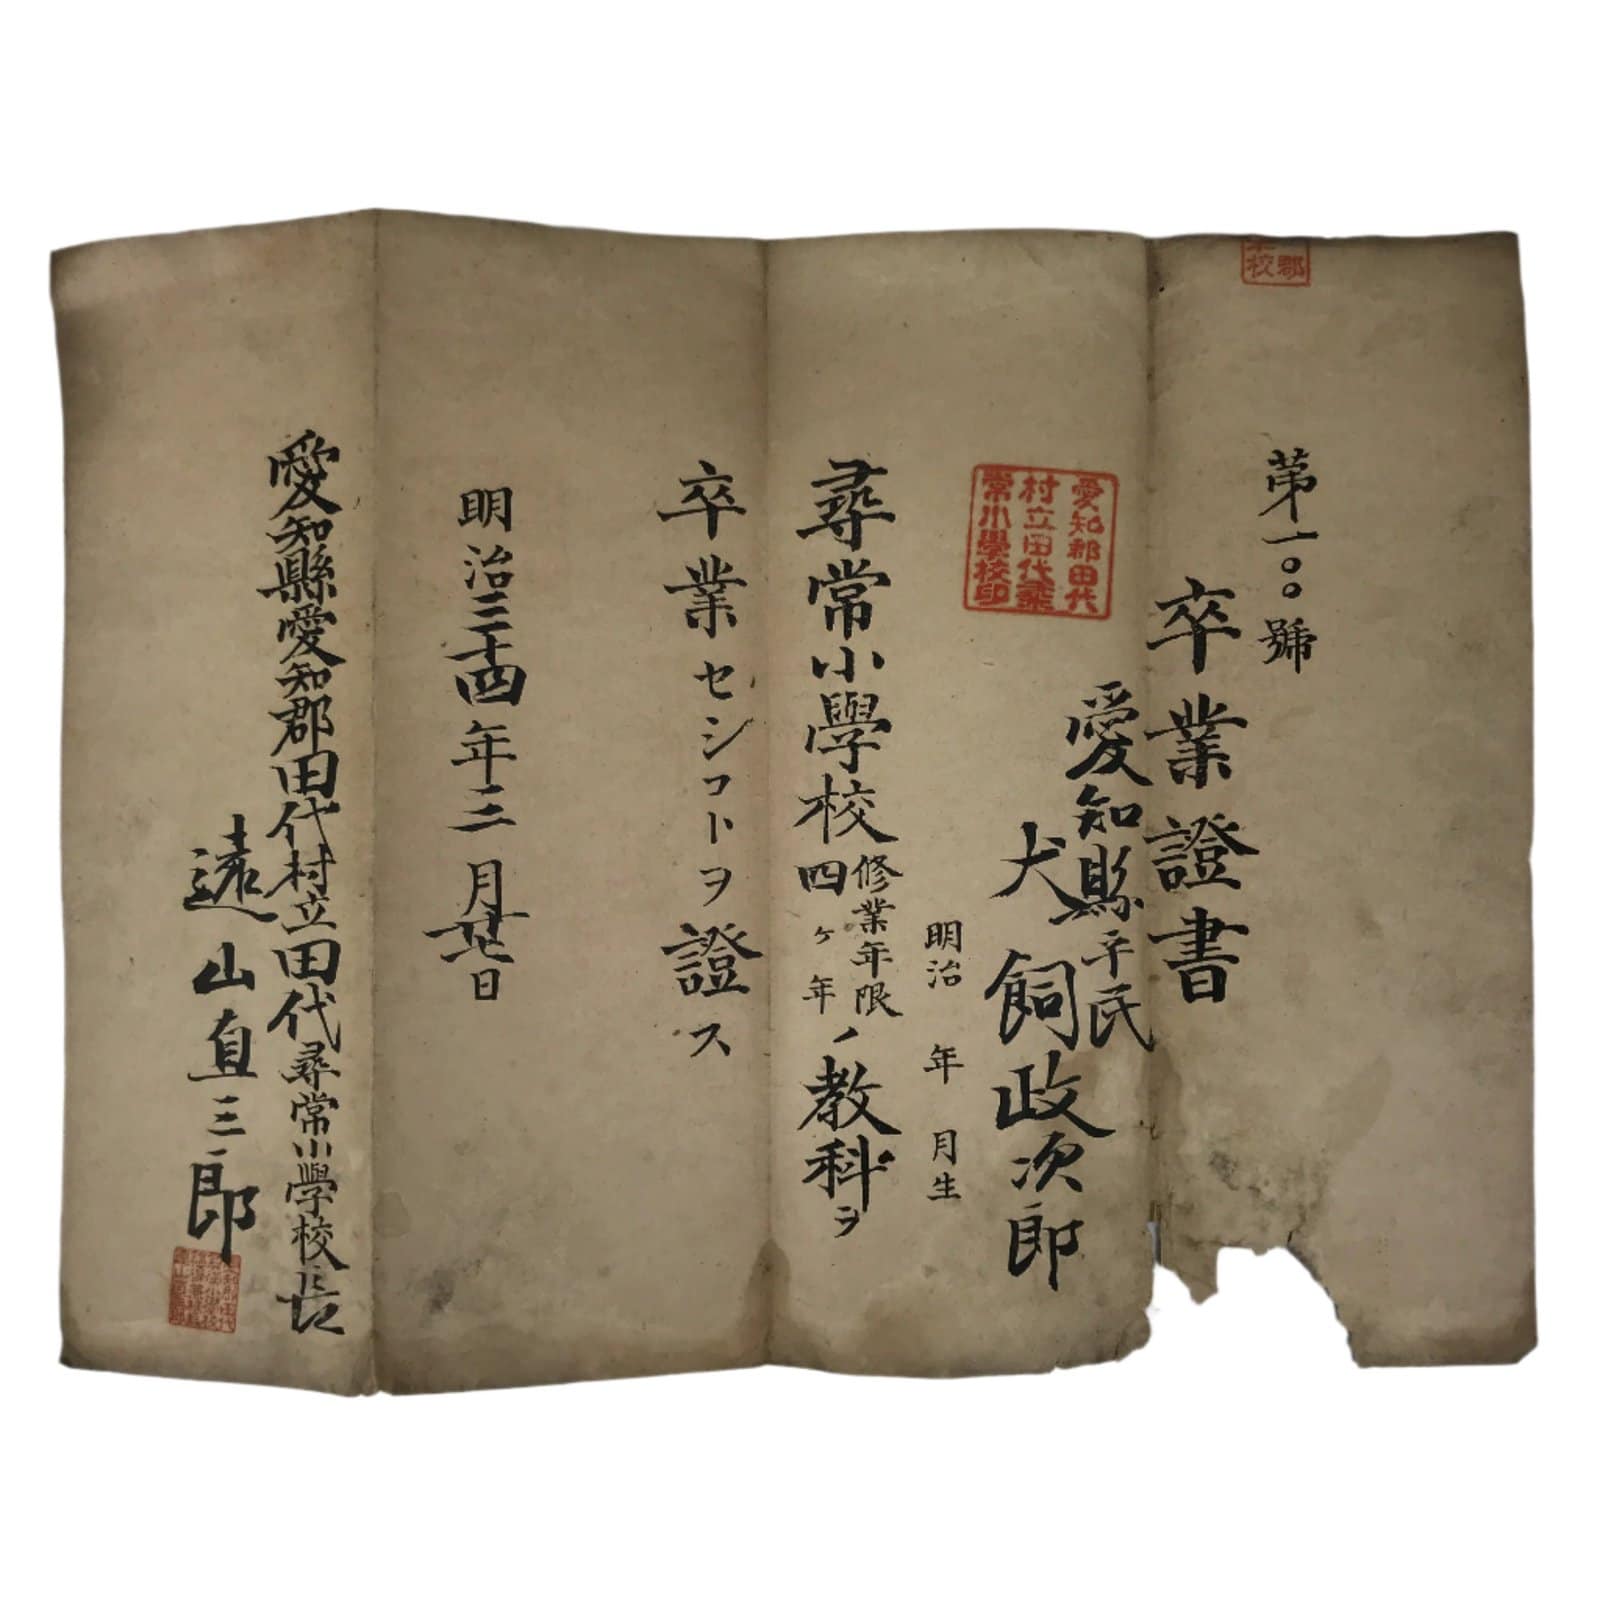 郡
校
第一〇〇號
卒業證書
愛知縣平民
犬飼政次郎
愛知郡田代
村立田代尋
常小學校印
明治 年 月生
尋常小學校修業年限四ヶ年ノ教科ヲ
卒業セシコトヲ證ス
明治三十四年三月廿七日
愛知縣愛知郡田代村立田代尋常小學校長
遠山直三郎